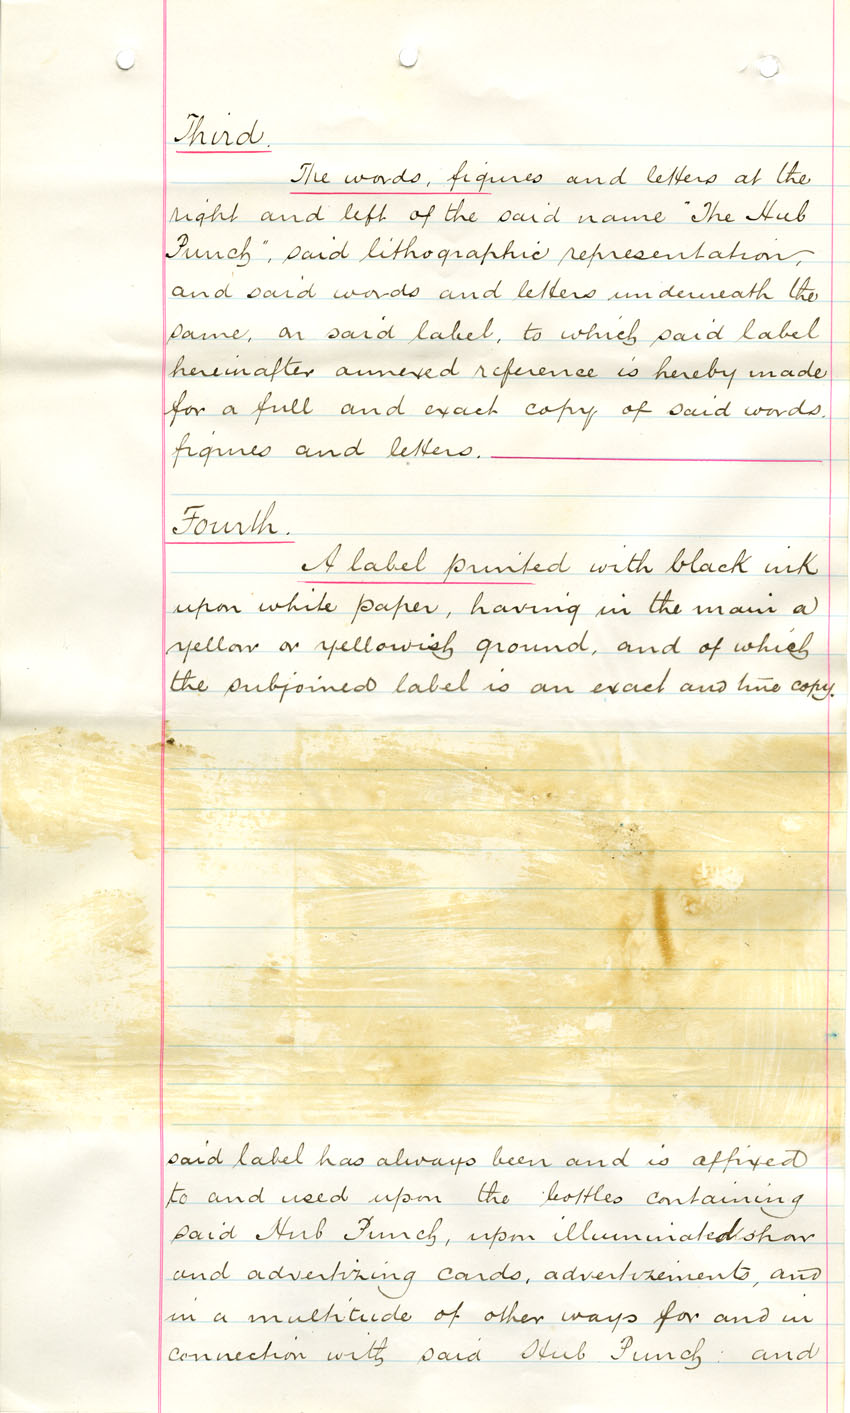 Third.
The words, figures and letters at the
right and left of the said name "The Hub
Punch", said lithographic representation,
and said words and letters underneath the
same, on said label, to which said label
hereinafter annexed reference is hereby made
for a full and exact copy of said words.
figures and letters.
Fourth.
A label printed with black ink
upon white paper, having in the main a
yellow or yellowish ground, and of which
the subjoined label is an exact and true copy.
said label has always been and is affixed
to and used upon the bottles containing
said Hub Punch, upon illuminated show
and advertizing cards, advertizements, and
in a multitude of other ways for and in
connection with said Hub Punch: and